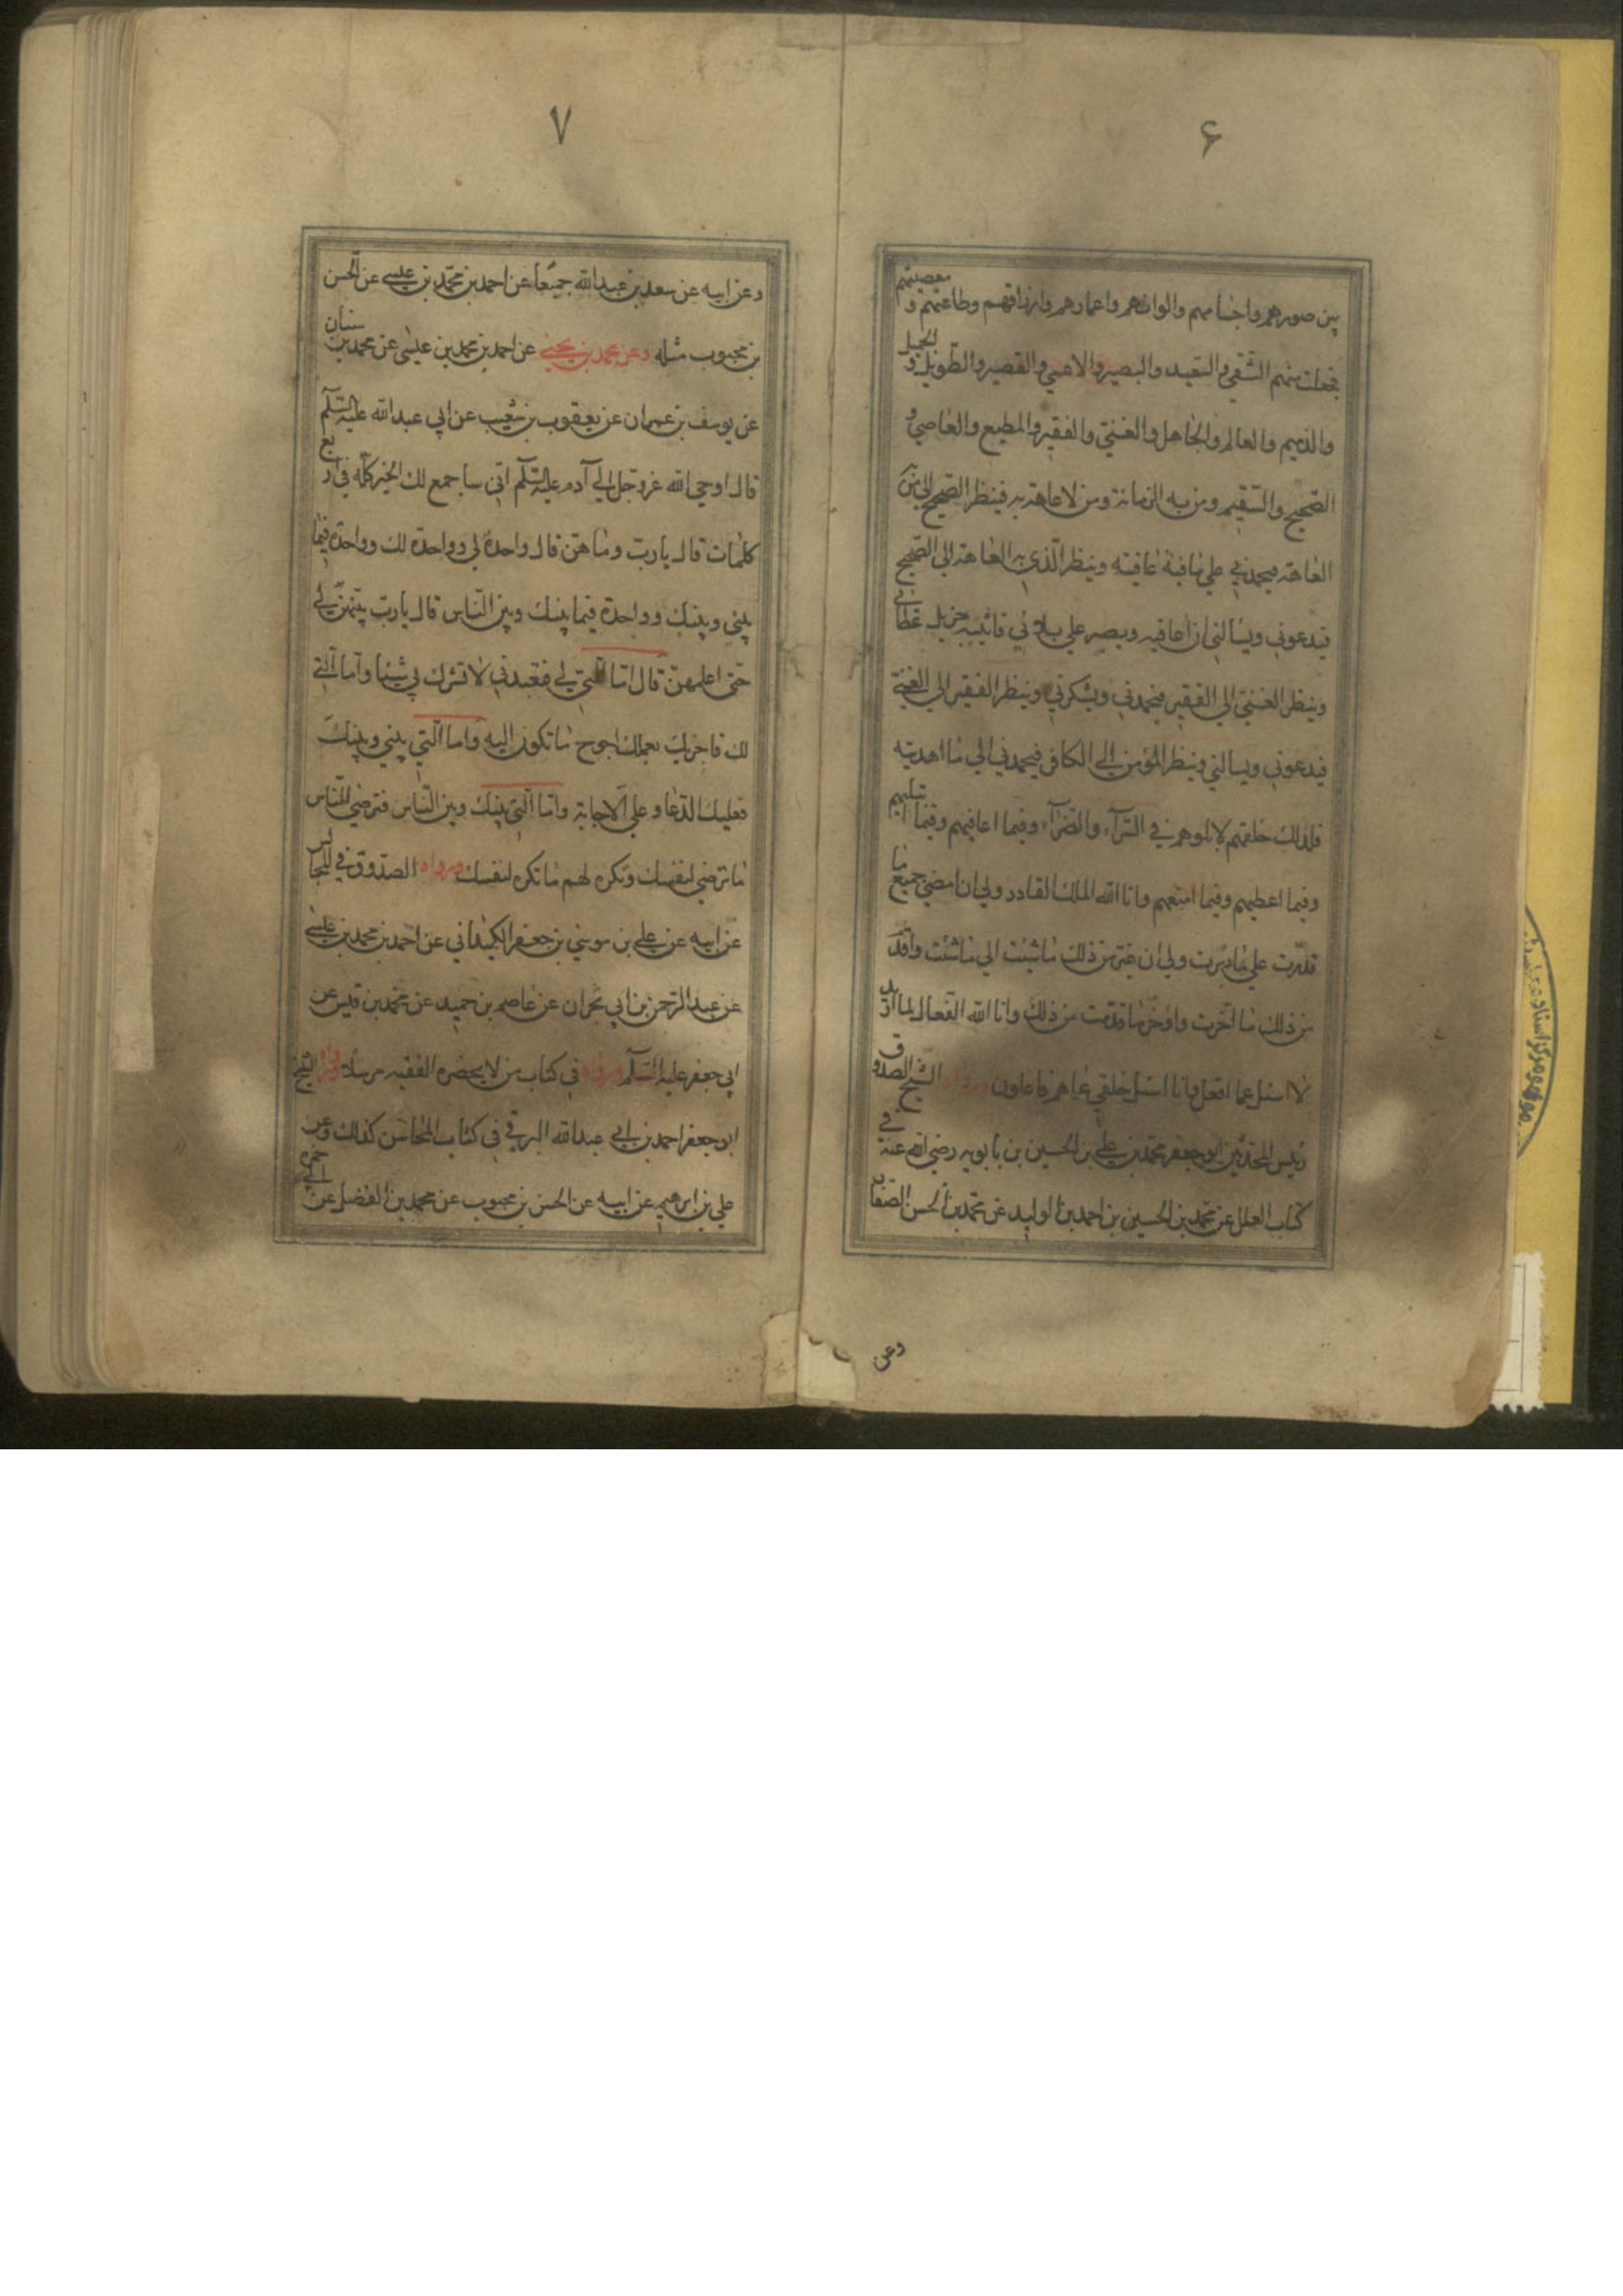 ۶
بين صورهم واجسامهم والوانهم واعمارهم وارزاقهم وطاعتهم و معصيتهم
فجعلت منهم الشقي والسعيد والبصير والاعمي والقصير والطويل و الجميل
والذميم والعالم والجاهل والغنيّ والفقير والمطيع والعاصي و
الصحيح والسقيم ومن به الزمانة ومن لا عاهة به فينظر الصحيح الي من
العاهة فيحمدني علي عافية عافيته وينظر الّذي به العاهة الي الصحيح
فيدعوني ويسالني ان اعافيه ويصبر علي بلائي فاثيبه جزيل عطائي
وينظر الغنيّ الي الفقير فيحمدني ويشكرني وينظر الفقير الي الغنيّ
فيدعوني ويسالني وينظر المؤمن الي الكافر فيحمدني الي ما اهديته
فلذلك خلقتهم لابلوهم في السّرآء والضّرآء وفيما اعافيهم وفيما ابتليهم
وفيما اعطيهم وفيما امنعهم وانا الله الملك القادر ولي ان امضي جميع ما
قدّرت علي ما دبّرت ولي ان غيّر من ذلك ما شئت الي ما شئت واقدّم
من ذلك ما اخّرت واؤخّر ما قدّمت من ذلك وانا الله الفعّال لما اريد
لا اسئل عما افعل وانا اسئل خلقي عما هم فاعلون ورواه الشيخ الصدوق
رئيس المحدّثين ابو جعفر محمّد بن علي بن الحسين بن بابويه رضي الله عنه في
كتاب العلل عن محمّد بن الحسين بن احمد بن الوليد عن محمّد بن الحسن الصفّار
وعن
۷
وعن ابيه عن سعد بن عبدالله جميعا عن احمد بن محمّد بن عيسي عن الحسن
بن محبوب مثله وعن محمد بن يحيي عن احمد بن محمد بن عيسي عن محمد بن سنان
عن يوسف بن عمران عن يعقوب بن شعيب عن ابي عبدالله عليه السّلم
قال اوحي الله عزوجل الي آدم عليه السّلم انّي ساجمع لك الخير كلّه في اربع
كلمات قال يا ربّ وما هنّ قال واحدة لي وواحدة لك وواحدة فيما
بيني وبينك وواحدة فيما بينك وبين النّاس قال يا ربّ بيّنهنّ لي
حتى اعلمهنّ قال امّا الّتي لي فتعبدني لا تشرك بي شيئا وامّا الّتي
لك فاجزيك بعملك احوج ما تكون اليه وامّا الّتي بيني وبينك
فعليك الدّعا وعليّ الاجابة وامّا الّتي بينك وبين النّاس فترضي للنّاس
ما ترضي لنفسك وتكره لهم ما تكره لنفسك ورواه الصدوق في المجالس
عن ابيه عن علي بن موسي بن جعفر الكميداني عن احمد بن محمد بن عيسي
عن عبد الرّحمن بن ابي نجران عن عاصم بن حميد عن محمّد بن قيس عن
ابي جعفر عليه السّلم ورواه في كتاب من لا يحضره الفقيه مرسلا ورواه الشيخ
ابو جعفر احمد بن ابي عبدالله البرقي في كتاب المحاسن كذلك وعن
علي بن ابرهيم عن ابيه عن الحسن بن محبوب عن محمد بن الفضل عن ابي حمزه